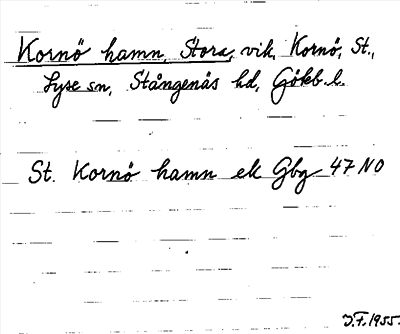 Kornö hamn, Stora, vik, Kornö, St.,
Lyse sn, Stångenäs hd, Göteb. l.
St. Kornö hamn ek Gbg 47 NO
J.F. 1955.